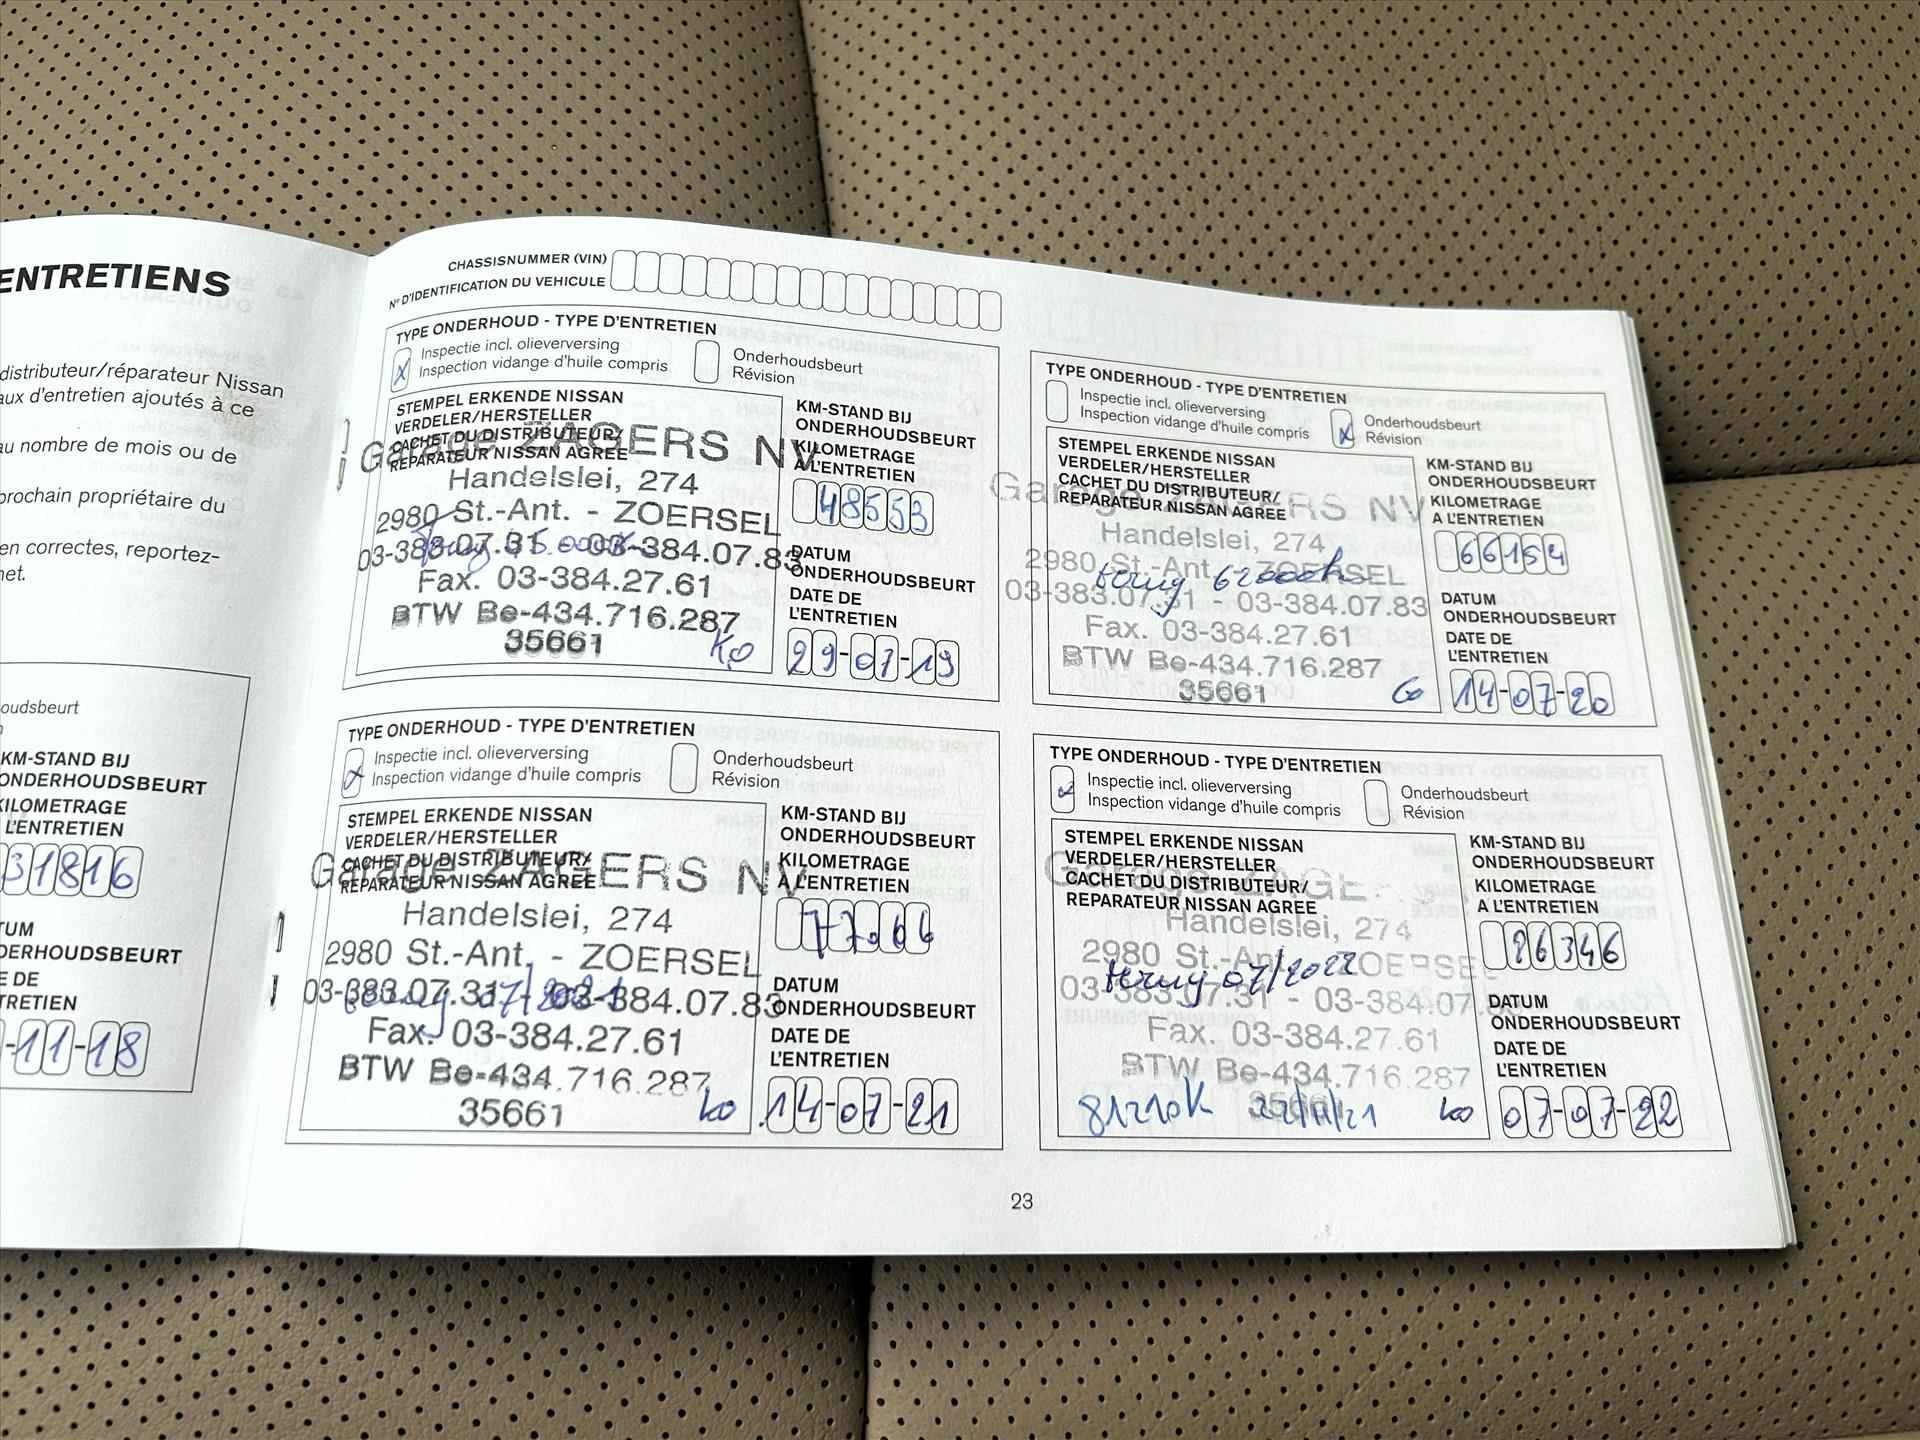 ENTRETIENS
distributeur/réparateur Nissan
aux d'entretien ajoutés à ce
au nombre de mois ou de
prochain propriétaire du
en correctes, reportez-
net.
oudsbeurt
KM-STAND BIJ
ONDERHOUDSBEURT
KILOMETRAGE
L'ENTRETIEN
31816
TUM
DERHOUDSBEURT
E DE
TRETIEN
-11-18
CHASSISNUMMER (VIN)
N° D'IDENTIFICATION DU VEHICULE
TYPE ONDERHOUD - TYPE D'ENTRETIEN
Inspectie incl. olieverversing
Inspection vidange d'huile compris
Onderhoudsbeurt
Révision
STEMPEL ERKENDE NISSAN
VERDELER/HERSTELLER
CACHET DU DISTRIBUTEUR/
REPARATEUR NISSAN AGREE
Garage ZAGERS NV
Handelslei, 274
2980 St.-Ant. - ZOERSEL
03-383.07.31 - 03-384.07.83
Fax. 03-384.27.61
BTW Be-434.716.287
35661
KM-STAND BIJ
ONDERHOUDSBEURT
KILOMETRAGE
A L'ENTRETIEN
48553
DATUM
ONDERHOUDSBEURT
DATE DE
L'ENTRETIEN
29-07-19
TYPE ONDERHOUD - TYPE D'ENTRETIEN
Inspectie incl. olieverversing
Inspection vidange d'huile compris
Onderhoudsbeurt
Révision
STEMPEL ERKENDE NISSAN
VERDELER/HERSTELLER
CACHET DU DISTRIBUTEUR/
REPARATEUR NISSAN AGREE
Garage ZAGERS NV
Handelslei, 274
2980 St.-Ant. - ZOERSEL
03-383.07.31 - 03-384.07.83
Fax. 03-384.27.61
BTW Be-434.716.287
35661
KM-STAND BIJ
ONDERHOUDSBEURT
KILOMETRAGE
A L'ENTRETIEN
66154
DATUM
ONDERHOUDSBEURT
DATE DE
L'ENTRETIEN
14-07-20
TYPE ONDERHOUD - TYPE D'ENTRETIEN
Inspectie incl. olieverversing
Inspection vidange d'huile compris
Onderhoudsbeurt
Révision
STEMPEL ERKENDE NISSAN
VERDELER/HERSTELLER
CACHET DU DISTRIBUTEUR/
REPARATEUR NISSAN AGREE
Garage ZAGERS NV
Handelslei, 274
2980 St.-Ant. - ZOERSEL
03-383.07.31 - 03-384.07.83
Fax. 03-384.27.61
BTW Be-434.716.287
35661
KM-STAND BIJ
ONDERHOUDSBEURT
KILOMETRAGE
A L'ENTRETIEN
DATUM
ONDERHOUDSBEURT
DATE DE
L'ENTRETIEN
14-07-21
TYPE ONDERHOUD - TYPE D'ENTRETIEN
Inspectie incl. olieverversing
Inspection vidange d'huile compris
Onderhoudsbeurt
Révision
STEMPEL ERKENDE NISSAN
VERDELER/HERSTELLER
CACHET DU DISTRIBUTEUR/
REPARATEUR NISSAN AGREE
Garage ZAGE
Handelslei, 274
2980 St.-Ant. ZOERSE
terug 07/2022
03-383.07.31 - 03-384.07.83
Fax. 03-384.27.61
BTW Be-434.716.287
22/11/21
KM-STAND BIJ
ONDERHOUDSBEURT
KILOMETRAGE
A L'ENTRETIEN
86346
DATUM
ONDERHOUDSBEURT
DATE DE
L'ENTRETIEN
07-07-22
23